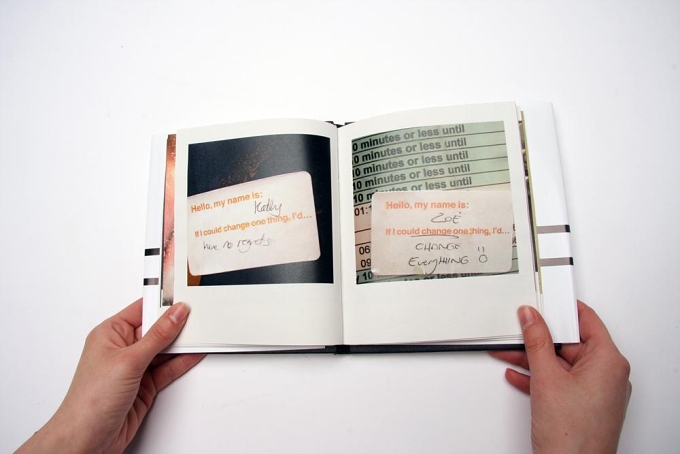 Hello, my name is:
Kathy
If I could change one thing, I'd...
have no regrets
0 minutes or less until
0 minutes or less until
10 minutes or less until
10 minutes or less until
10 minutes or less until
01:
Hello, my name is:
Zoë
If I could change one thing, I'd...
CHANGE
EVERYTHING
06
09
10 minutes or less until